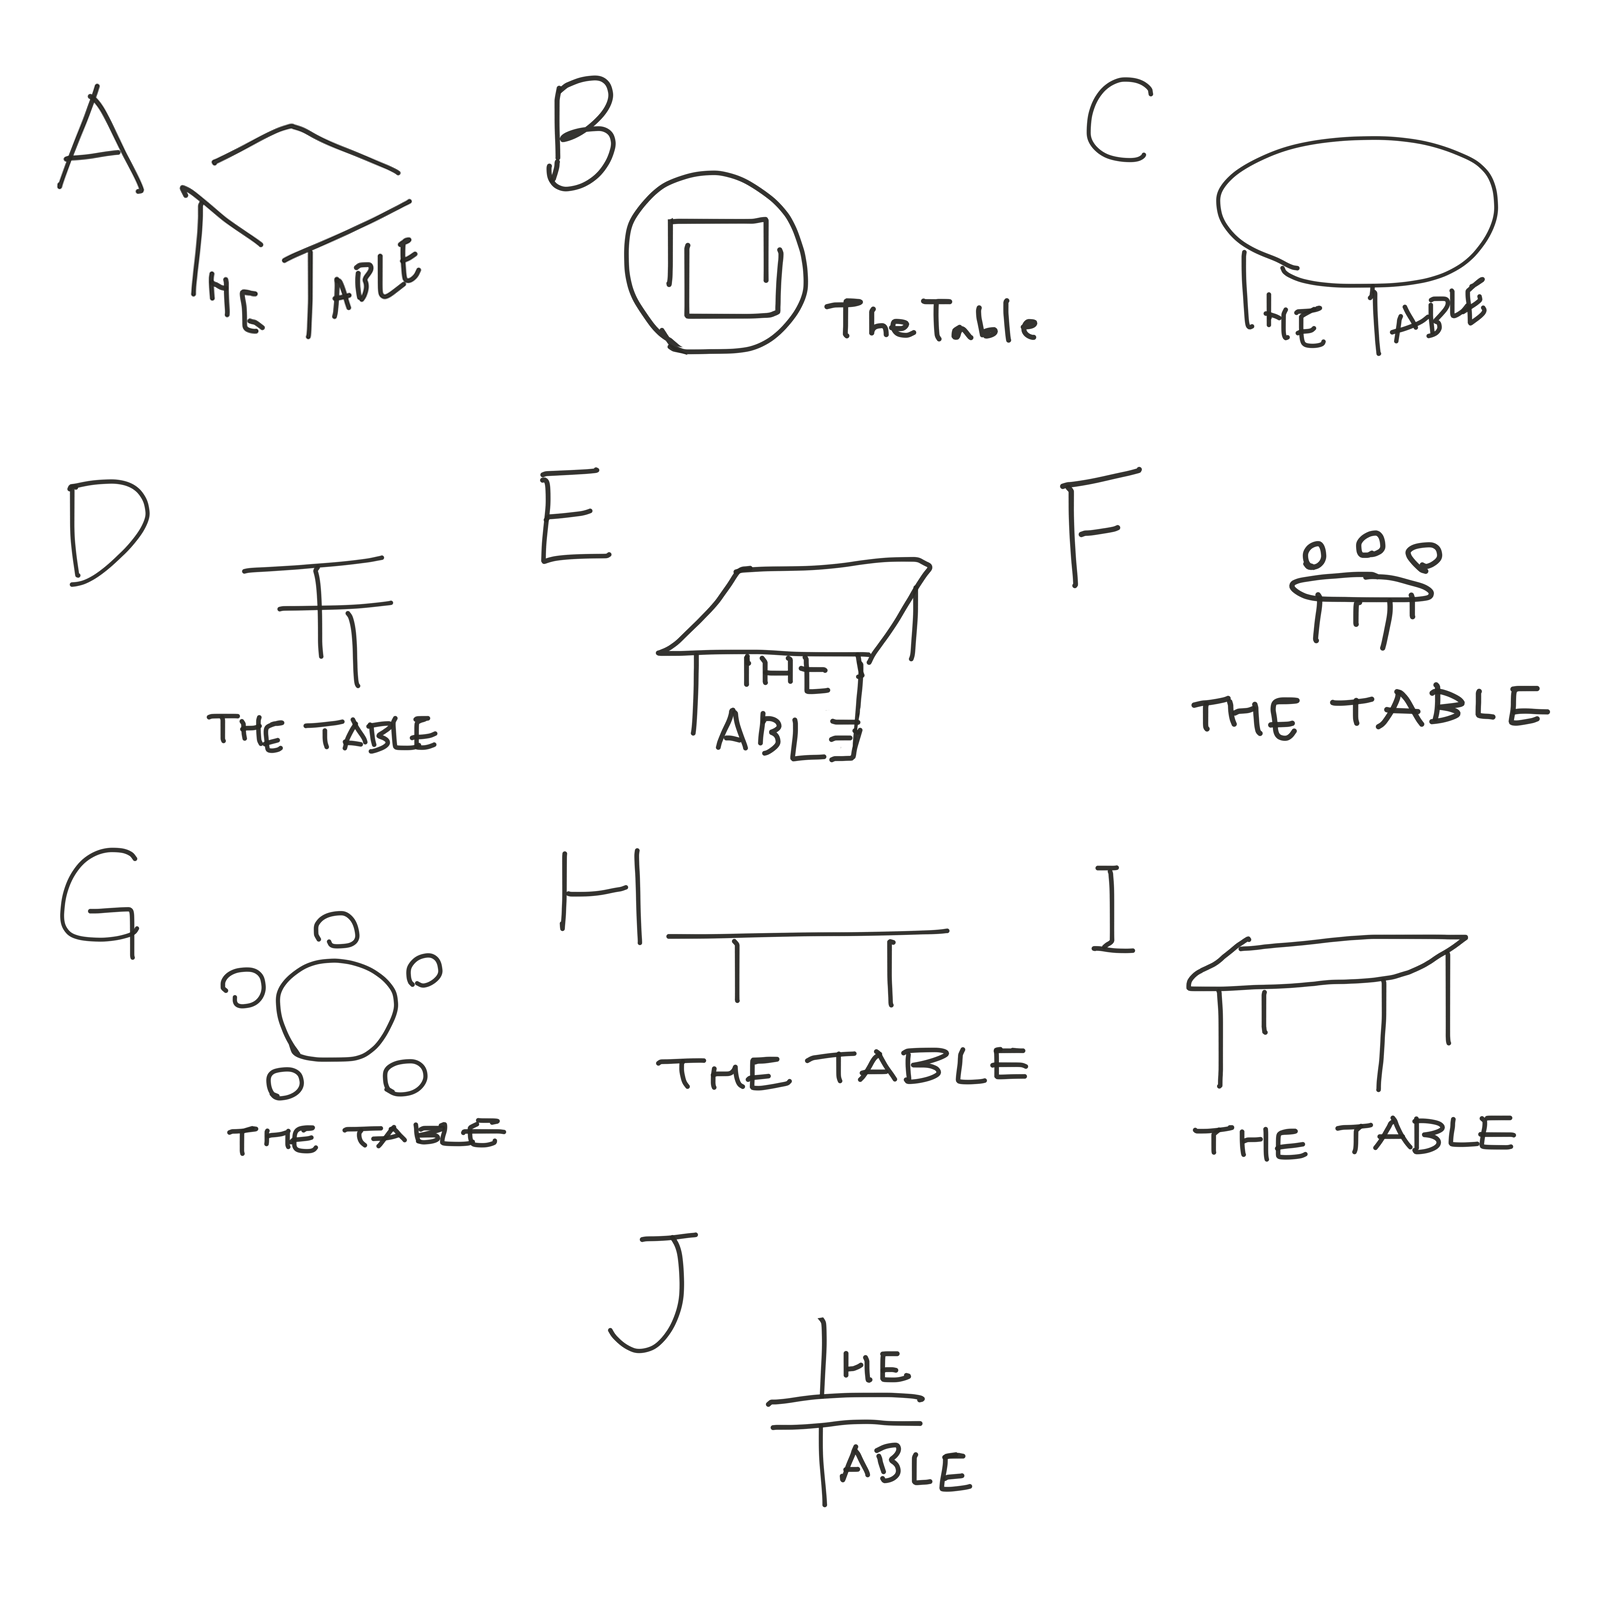 A
THE TABLE
B
The Table
C
THE TABLE
D
THE TABLE
E
THE
TABLE
F
THE TABLE
G
THE TABLE
H
THE TABLE
I
THE TABLE
J
THE
TABLE